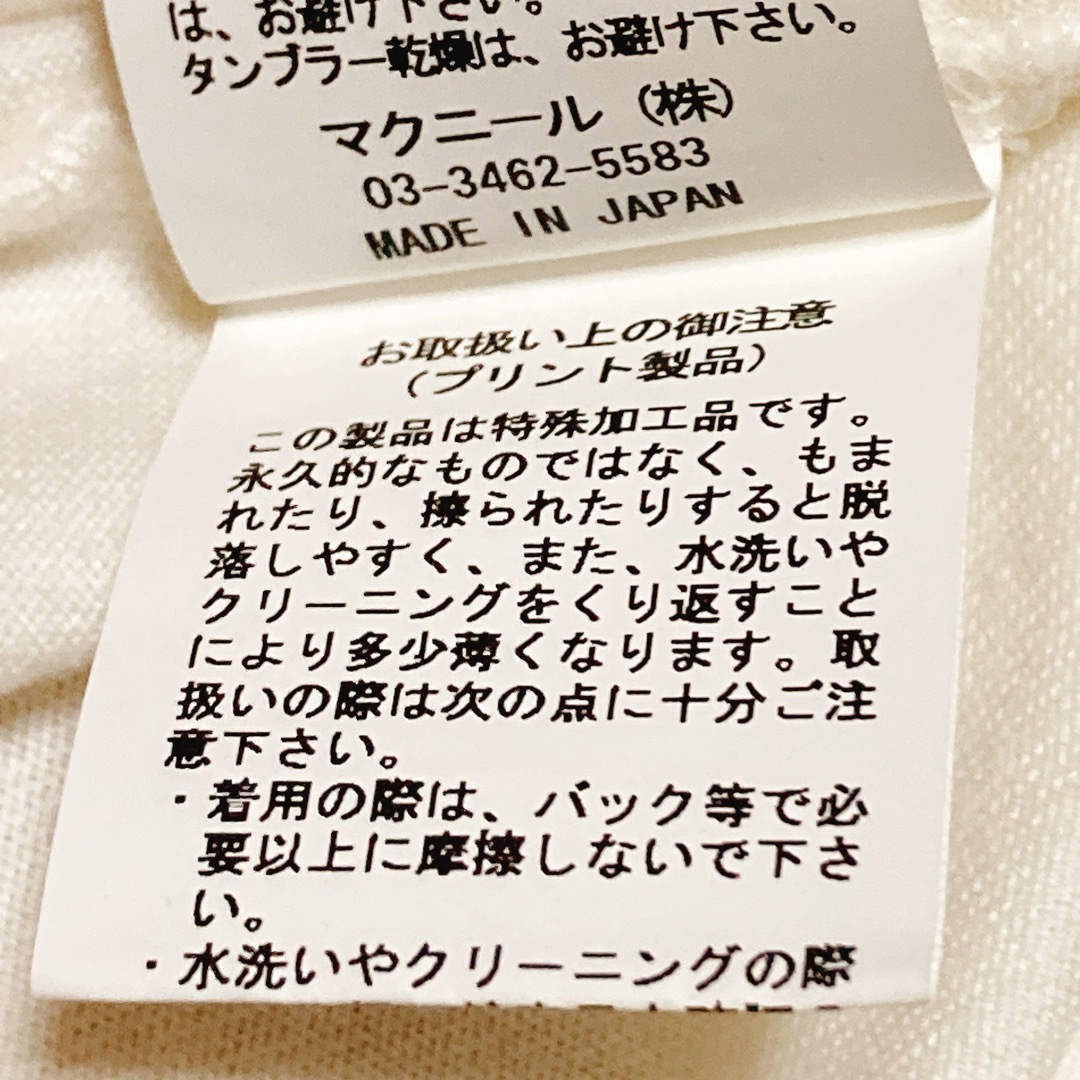 は、お避け下さい。
タンブラー乾燥は、お避け下さい。
マクニール（株）
03-3462-5583
MADE IN JAPAN
お取扱い上の御注意
（プリント製品）
この製品は特殊加工品です。
永久的なものではなく、もま
れたり、擦られたりすると脱
落しやすく、また、水洗いや
クリーニングをくり返すこと
により多少薄くなります。取
扱いの際は次の点に十分ご注
意下さい。
・着用の際は、バック等で必
要以上に摩擦しないで下さ
い。
・水洗いやクリーニングの際